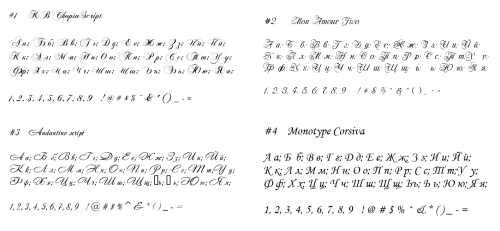 #1 K B ChopinScript
Аа; Бб; Вв; Гг; Дд; Ее; Жж; Зз; Ии; Йй;
Кк; Лл; Мм; Нн; Оо; Пп; Рр; Сс; Тт; Уу;
Фф; Хх; Цц; Чч; Шш; Щщ; Ъъ; Ьь; Юю; Яя;
1, 2, 3, 4, 5, 6, 7, 8, 9 ! @ # $ % ^ & * ( ) _ - =
#2 Mon Amour Two
Аа; Бб; Вв; Гг; Дд; Ее; Жж; Зз; Ии; Йй;
Кк; Лл; Мм; Нн; Оо; Пп; Рр; Сс; Тт; Уу;
Фф; Хх; Цц; Чч; Шш; Щщ; ъ; ь; Юю; Яя;
1, 2, 3, 4, 5, 6, 7, 8, 9 ! # $ % & ^ * ( ) _ - =
#3 Andantino script
Аа; Бб; Вв; Гг; Дд; Ее; Жж; Зз; Ии; Йй;
Кк; Лл; Мм; Нн; Оо; Пп; Рр; Сс; Тт; Уу;
Фф; Хх; Цц; Чч; Шш; Щщ; ъ; ь; Юю; Яя;
1, 2, 3, 4, 5, 6, 7, 8, 9 ! @ # $ % ^ & * ( ) _ - =
#4 Monotype Corsiva
Аа; Бб; Вв; Гг; Дд; Ее; Жж; Зз; Ии; Йй;
Кк; Лл; Мм; Нн; Оо; Пп; Рр; Сс; Тт; Уу;
Фф; Хх; Цц; Чч; Шш; Щщ; Ъъ; Ьь; Юю; Яя;
1, 2, 3, 4, 5, 6, 7, 8, 9 ! @ # $ % ^ & * ( ) _ - =